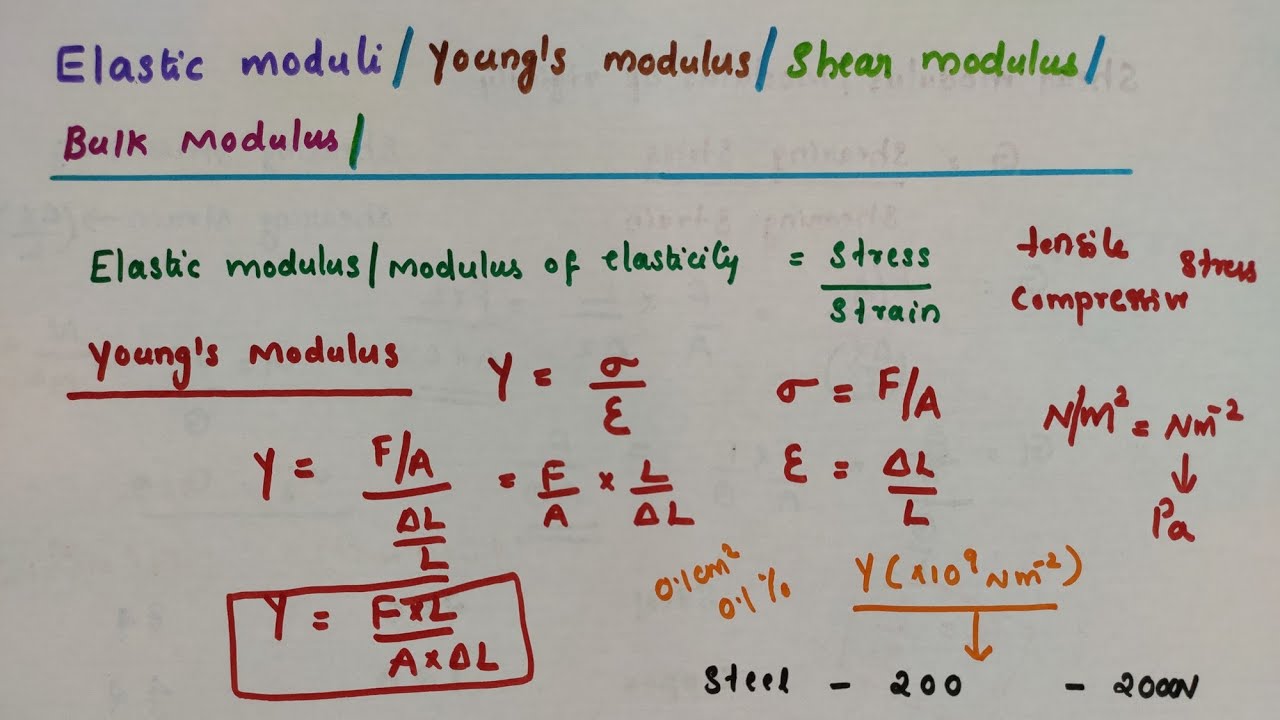 Elastic moduli/Young's modulus/Shear modulus/
Bulk Modulus/
Elastic modulus/modulus of elasticity = Stress/Strain
tensile
compressive stress
Young's Modulus
Y = σ/ε
σ = F/A
N/m² = Nm⁻²
↓
Pa
Y = F/A / ΔL/L = F/A × L/ΔL
ε = ΔL/L
0.1cm²
0.1%
Y(×10⁹ Nm⁻²)
↓
Y = F×L / A×ΔL
Steel - 200 - 2000N